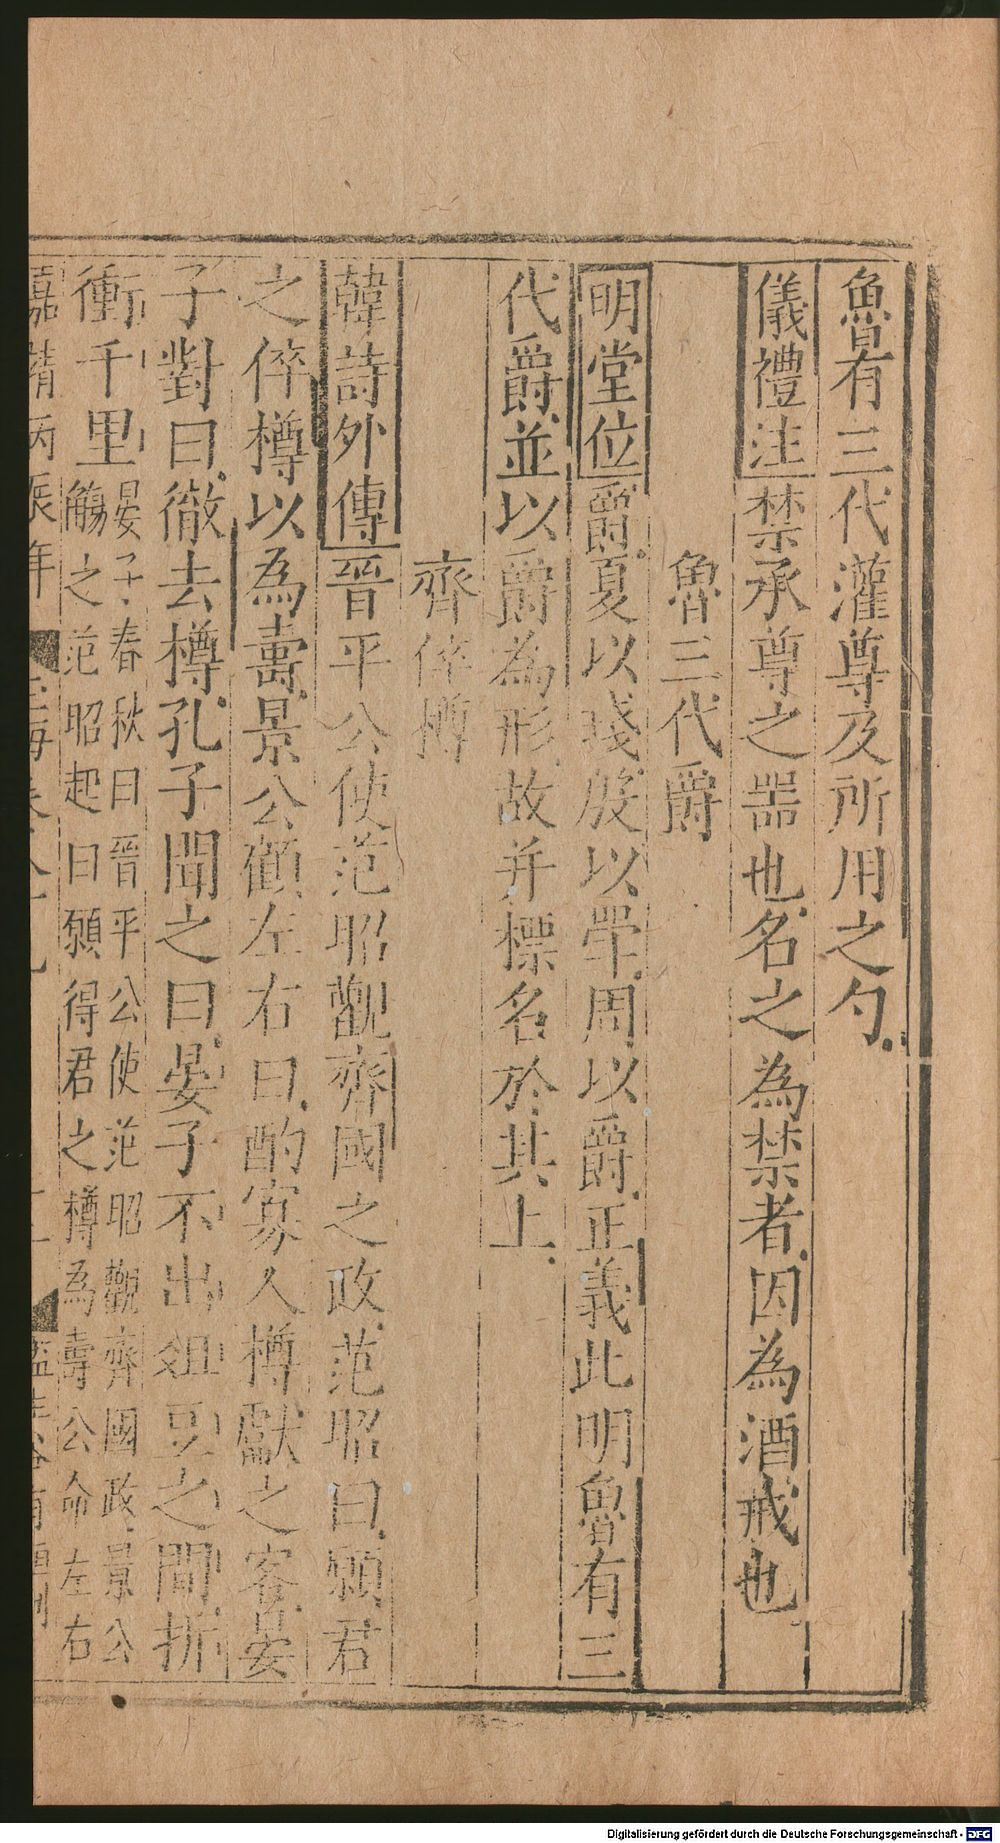 魯有三代灌尊及所用之勺
儀禮注禁承尊之器也名之為禁者因為酒戒也
魯三代爵
明堂位爵夏以琖殷以斝周以爵正義此明魯有三
代爵並以爵為形故并標名於其上
齊倅樽
韓詩外傳晉平公使范昭觀齊國之政范昭曰願君
之倅樽以為壽景公顧左右曰酌寡人樽獻之客晏
子對曰徹去樽孔子聞之曰晏子不出俎豆之間折
衝千里
晏子春秋曰晉平公使范昭觀齊國政景公
觴之范昭起曰願得君之樽為壽公命左右
嘉靖丙辰年
Digitalisierung gefördert durch die Deutsche Forschungsgemeinschaft - DFG